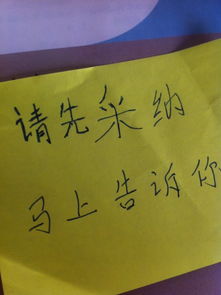 请先采纳
马上告诉你